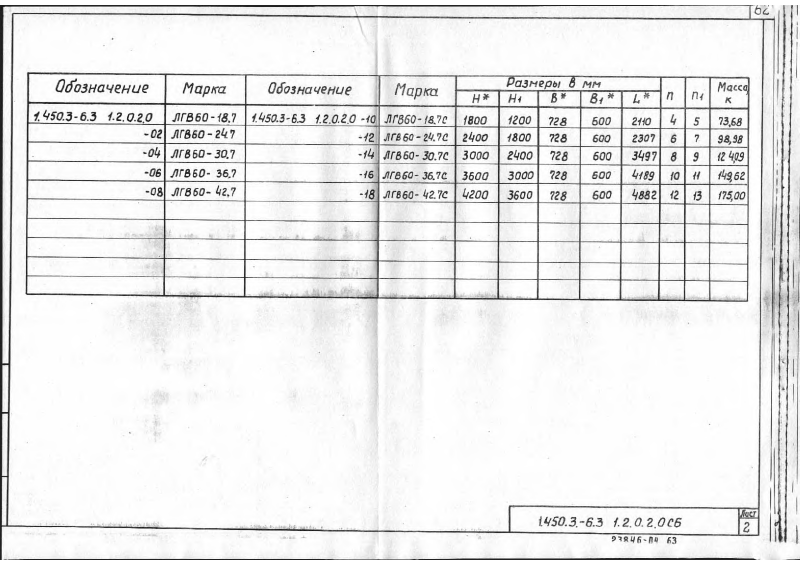 62
Обозначение Марка Обозначение Марка Размеры в мм п п1 Масса, к
H* H1 B* B1* L*
1.450.3-6.3 1.2.0.2.0 ЛГВ60-18.7 1.450.3-6.3 1.2.0.2.0 -10 ЛГВ60-18.7С 1800 1200 728 600 2110 4 5 73,68
-02 ЛГВ60-24.7 -12 ЛГВ60-24.7С 2400 1800 728 600 2307 6 7 98,98
-04 ЛГВ60-30.7 -14 ЛГВ60-30.7С 3000 2400 728 600 3497 8 9 124,29
-06 ЛГВ60-36.7 -16 ЛГВ60-36.7С 3600 3000 728 600 4189 10 11 149,62
-08 ЛГВ60-42.7 -18 ЛГВ60-42.7С 4200 3600 728 600 4882 12 13 175,00
1.450.3.-6.3 1.2.0.2.0СБ
Лист
2
63